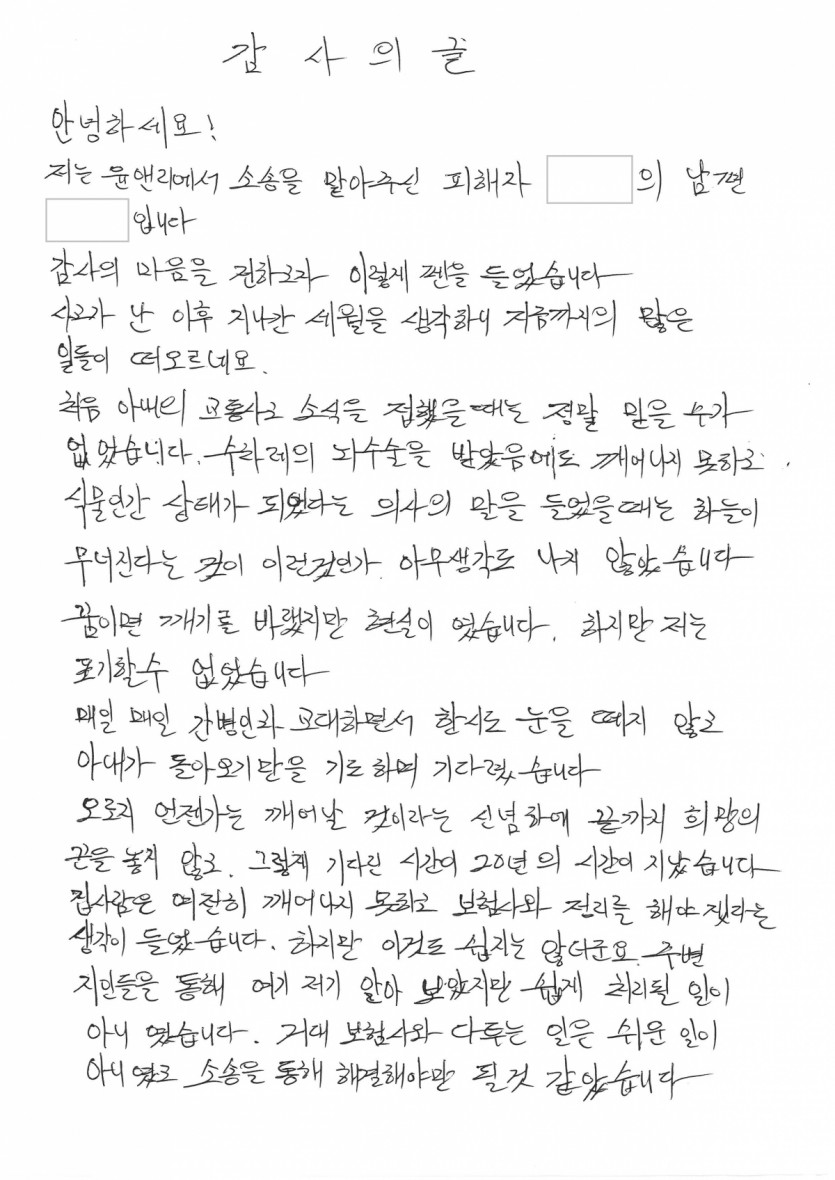 감 사 의 글
안녕하세요!
저는 윤앤리에서 소송을 맡아주신 피해자 의 남편
입니다
감사의 마음을 전하고자 이렇게 펜을 들었습니다
사고가 난 이후 지나간 세월을 생각하니 지금까지의 많은
일들이 떠오르네요.
처음 아내의 교통사고 소식을 접했을때는 정말 믿을 수가
없었습니다. 수차례의 뇌수술을 받았음에도 깨어나지 못하고
식물인간 상태가 되었다는 의사의 말을 들었을때는 하늘이
무너진다는 것이 이런것인가. 아무생각도 나지 않았습니다
꿈이면 깨기를 바랬지만 현실이 였습니다. 하지만 저는
포기할수 없었습니다
매일 매일 간병인과 교대하면서 한시도 눈을 떼지 않고
아내가 돌아오기만을 기도하며 기다렸습니다
오로지 언젠가는 깨어날 것이라는 신념하에 끝까지 희망의
끈을 놓지 않고. 그렇게 기다린 시간이 20년의 시간이 지났습니다
집사람은 여전히 깨어나지 못하고 보험사와 정리를 해야 겠다는
생각이 들었습니다. 하지만 이것도 쉽지는 않더군요. 주변
지인들을 통해 여기 저기 알아 보았지만 쉽게 처리될 일이
아니 였습니다. 거대 보험사와 다투는 일은 쉬운 일이
아니였고 소송을 통해 해결해야만 될것 같았습니다